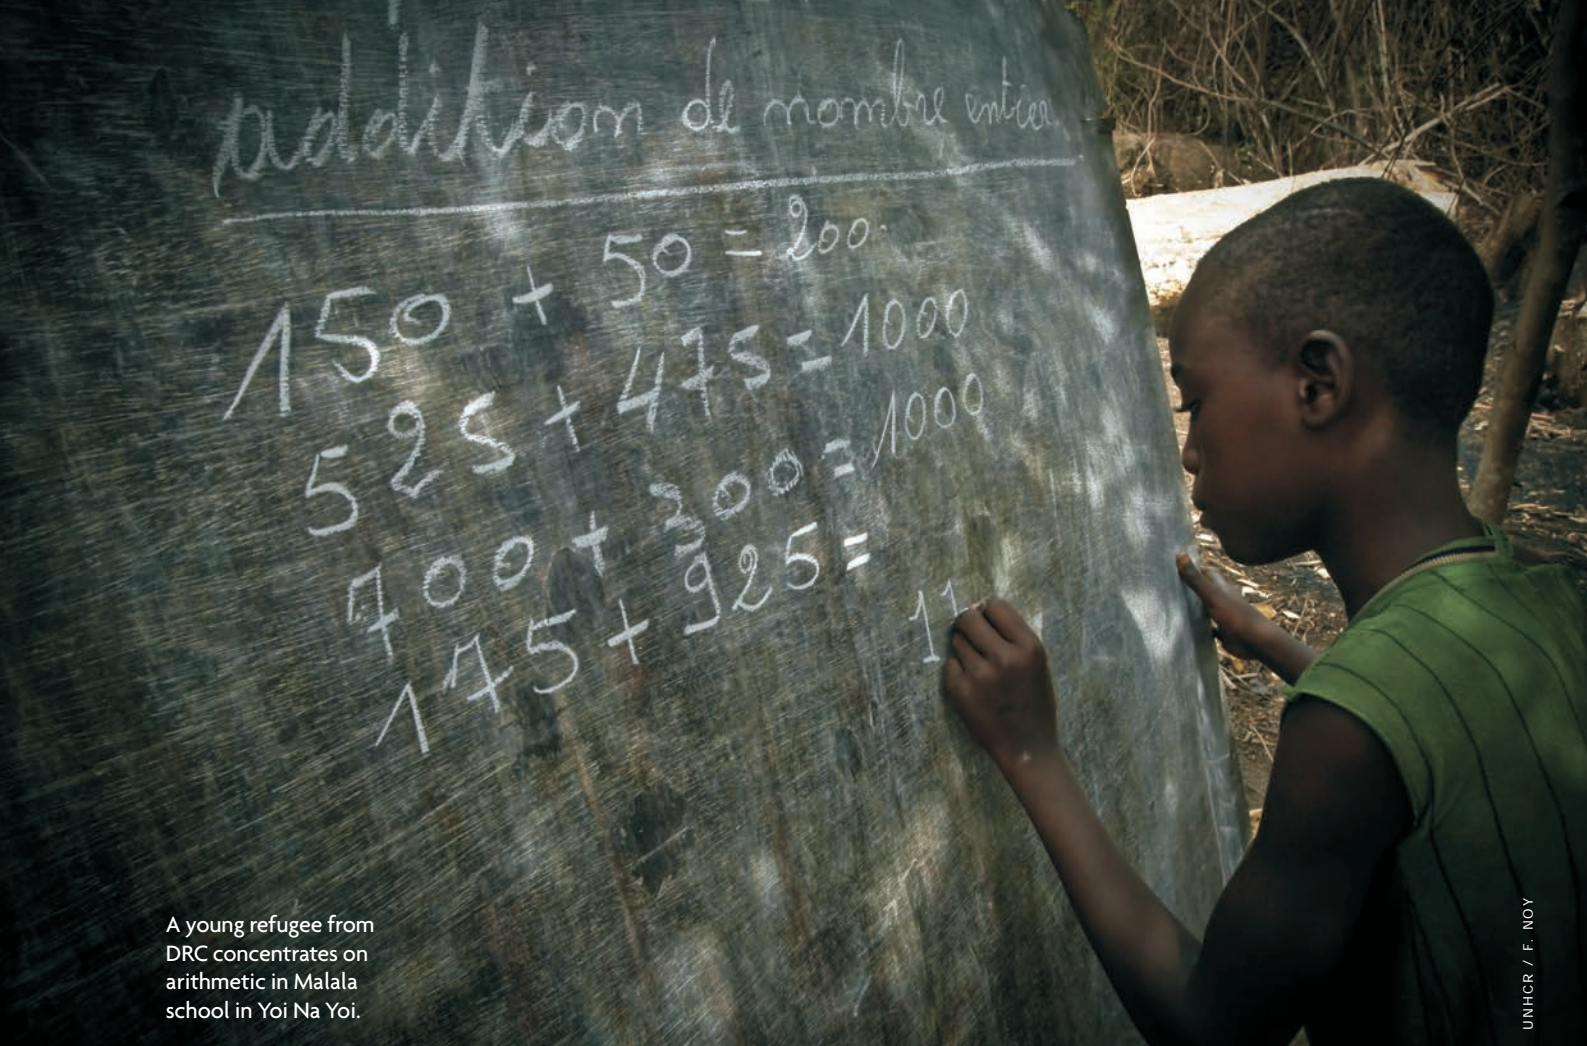 addition de nombre entier
150 + 50 = 200
525 + 475 = 1000
700 + 300 = 1000
175 + 925 =
11
A young refugee from
DRC concentrates on
arithmetic in Malala
school in Yoi Na Yoi.
UNHCR / F. NOY